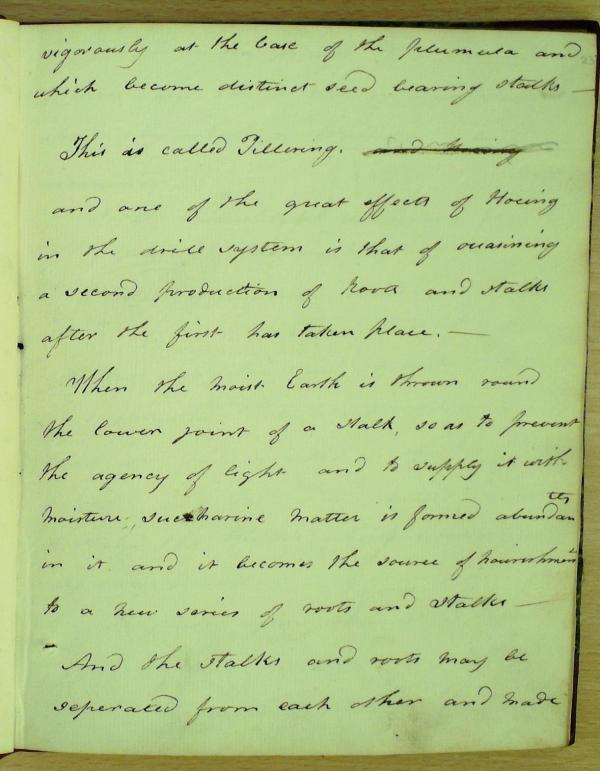 vigorously at the base of the plumula and
which become distinct seed bearing stalks —
This is called Tillering. and Hoeing
and one of the great effects of Hoeing
in the drill system is that of occasioning
a second production of Roots and stalks
after the first has taken place. —
When the moist Earth is thrown round
the lower joint of a stalk, so as to prevent
the agency of light and to supply it with
moisture, saccharine matter is formed abundantly
in it and it becomes the source of nourishment
to a new series of roots and stalks —
And the stalks and roots may be
seperated from each other and made